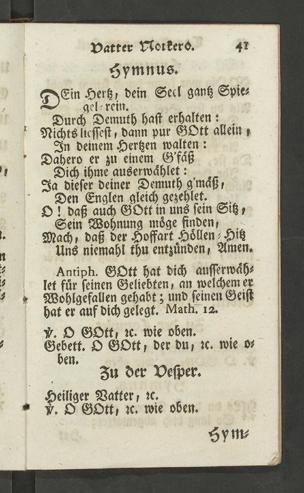 Vatter Notkero. 41
Hymnus.
DEin Hertz, dein Seel gantz Spie-
gel-rein.
Durch Demuth hast erhalten:
Nichts liessest, dann pur GOtt allein,
In deinem Hertzen walten:
Dahero er zu einem G'fäß
Dich ihme auserwählet:
Ja dieser deiner Demuth g'mäß,
Den Englen gleich gezehlet.
O! daß auch GOtt in uns sein Sitz,
Sein Wohnung möge finden,
Mach, daß der Hoffart Höllen-Hitz
Uns niemahl thu entzünden, Amen.
Antiph. GOtt hat dich ausserwäh-
let für seinen Geliebten, an welchem er
Wohlgefallen gehabt; und seinen Geist
hat er auf dich gelegt. Math. 12.
℣. O GOtt, ꝛc. wie oben.
Gebett. O GOtt, der du, ꝛc. wie o-
ben.
Zu der Vesper.
Heiliger Vatter, ꝛc.
℣. O GOtt, ꝛc. wie oben.
Hym-